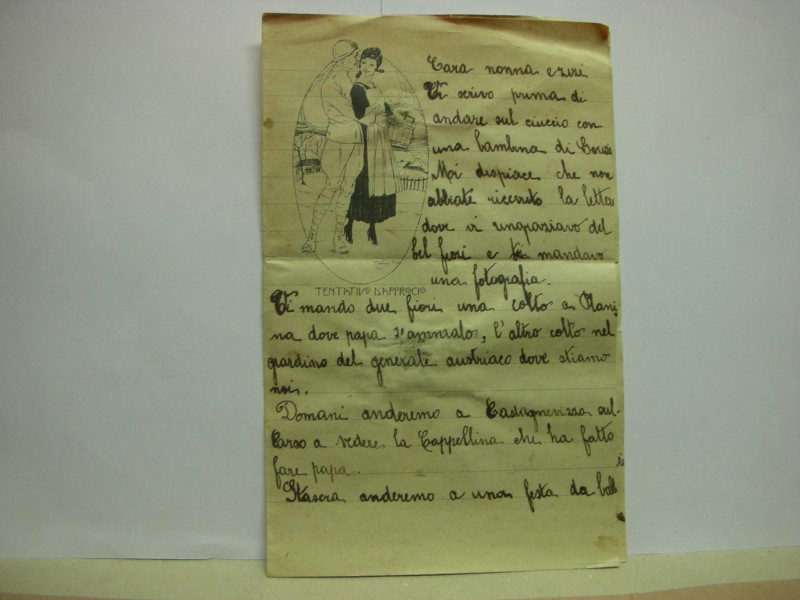 Cara nonna e zizi
Vi scrivo prima di
andare sul ciuccio con
una bambina di
Mi dispiace che non
abbiate ricevuto la lettera
dove vi ringraziavo del
bel fiori e vi mandavo
una fotografia.
TENTATIVO D'APPROCIO
Vi mando due fiori una colto a Plani
na dove papa, l'altro colto nel
giardino del generale austriaco dove stiamo
noi.
Domani anderemo a Castagnevizza sul
Carso a vedere la Cappellina che ha fatto
fare papa.
Stasera anderemo a una festa da ballo